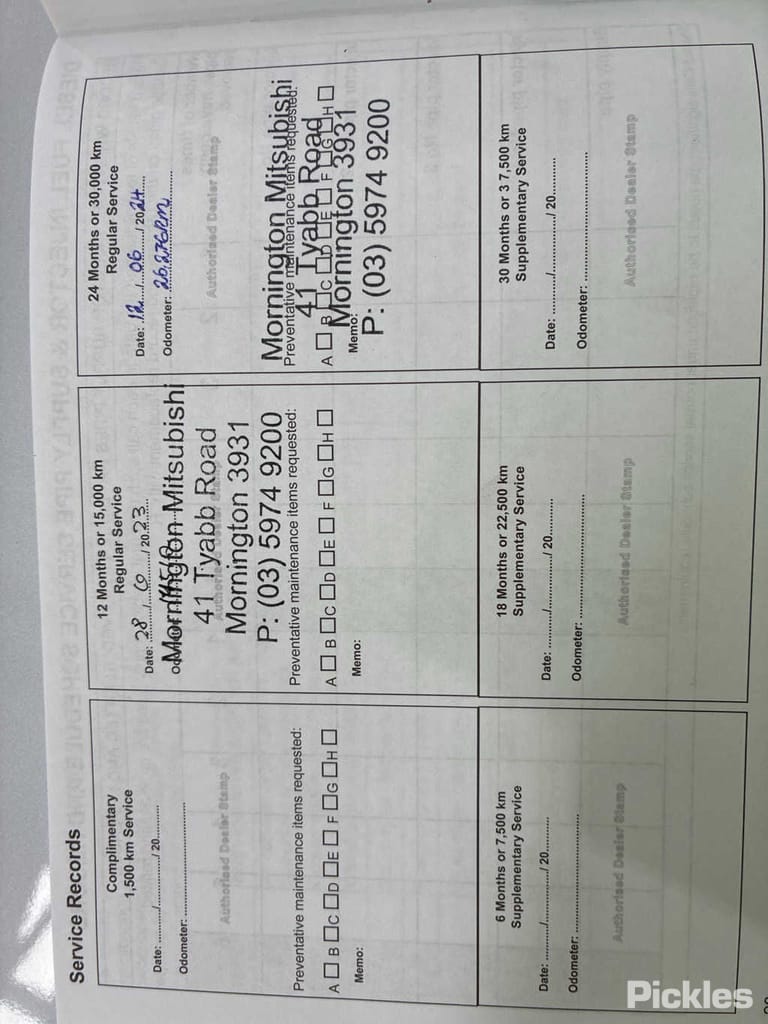 Service Records
Complimentary
1,500 km Service
Date: ........../........../ 20..........
Odometer: ..............................
Authorised Dealer Stamp
Preventative maintenance items requested:
A □ B □ C □ D □ E □ F □ G □ H □
Memo:
12 Months or 15,000 km
Regular Service
Date: 28 / 6 / 2023
Mornington Mitsubishi
41 Tyabb Road
Mornington 3931
P: (03) 5974 9200
Preventative maintenance items requested:
A □ B □ C □ D □ E □ F □ G □ H □
Memo:
24 Months or 30,000 km
Regular Service
Date: 12 / 06 / 2024
Odometer: 26,276km
Authorised Dealer Stamp
Mornington Mitsubishi
Preventative maintenance items requested:
41 Tyabb Road
A □ B □ C □ D □ E □ F □ G □ H □
Mornington 3931
Memo:
P: (03) 5974 9200
6 Months or 7,500 km
Supplementary Service
Date: ........../........../ 20..........
Odometer: ..............................
Authorised Dealer Stamp
18 Months or 22,500 km
Supplementary Service
Date: ........../........../ 20..........
Odometer: ..............................
Authorised Dealer Stamp
30 Months or 3 7,500 km
Supplementary Service
Date: ........../........../ 20..........
Odometer: ..............................
Authorised Dealer Stamp
Pickles